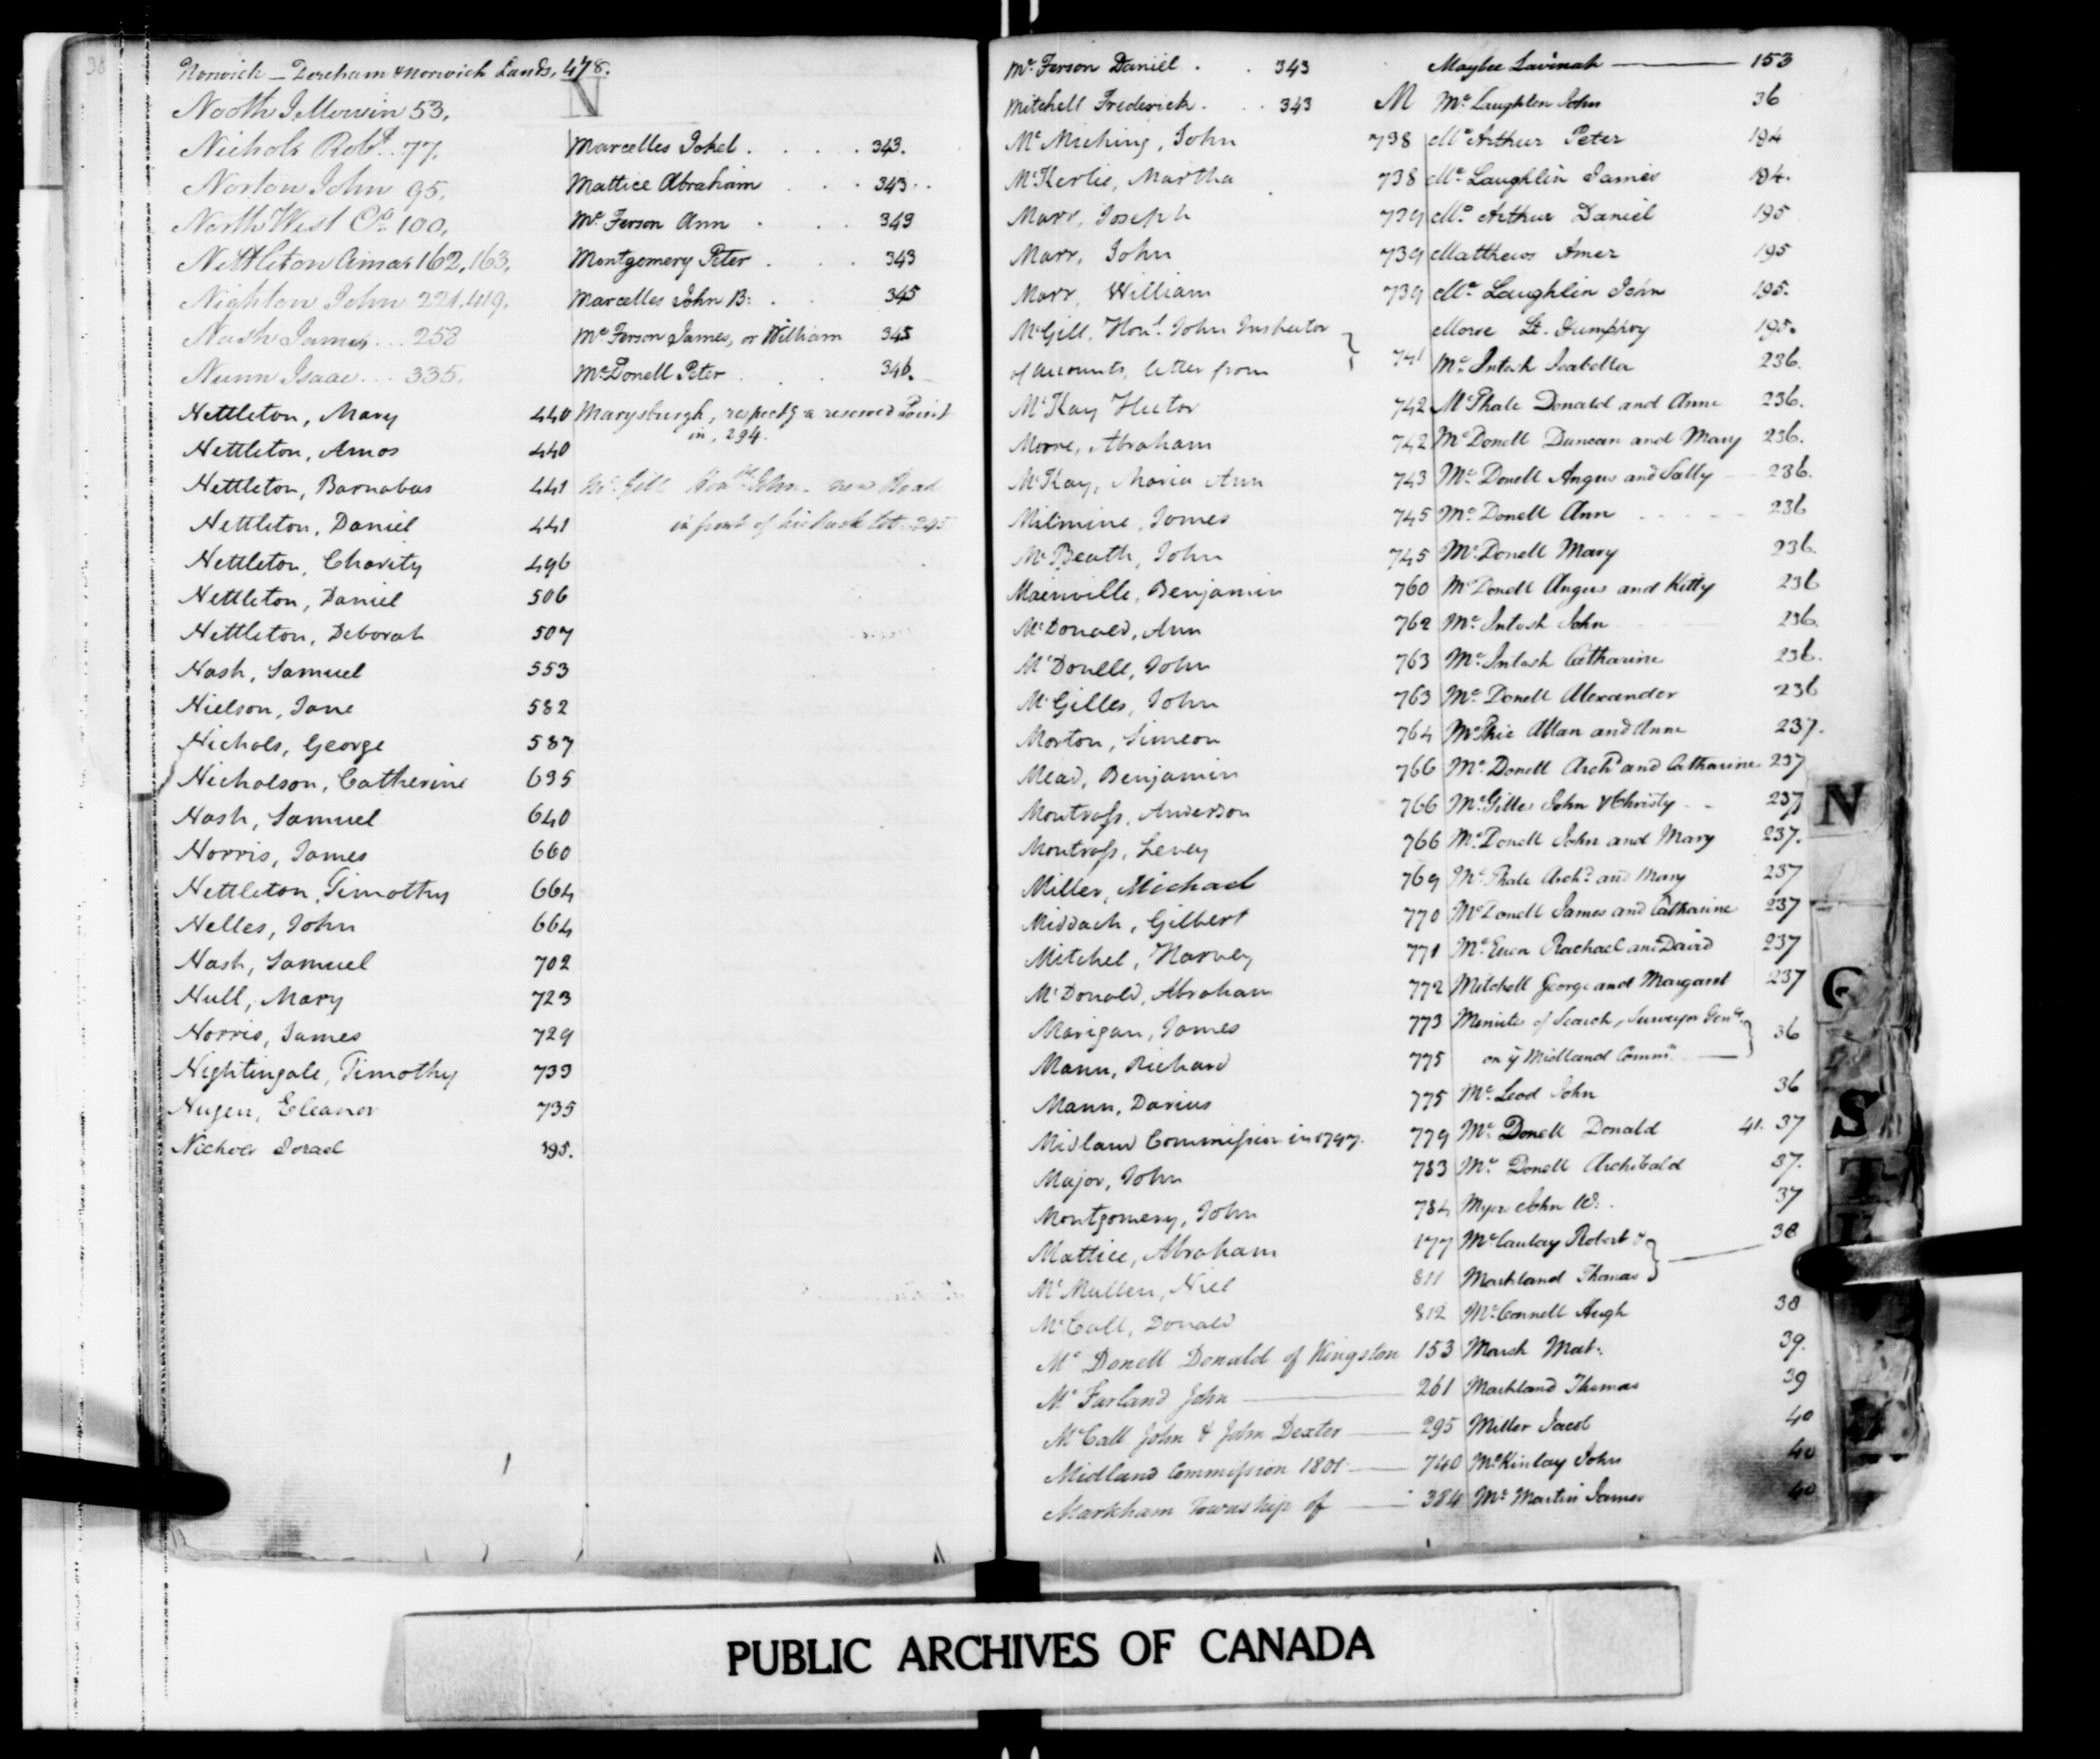 38
Norwich - Dereham & Norwich Lands, 478.
N
Nooth J. Mervin 53.
Nichols Robt. 77.
Norton John 95.
North West Co. 100.
Nettleton Amos 162, 163.
Nighton John 221. 419.
Nash James ... 258
Nunn Isaac ... 335.
Nettleton, Mary 440
Nettleton, Amos 440
Nettleton, Barnabas 441
Nettleton, Daniel 441
Nettleton, Charity 496
Nettleton, Daniel 506
Nettleton, Deborah 507
Nash, Samuel 553
Nielson, Jane 582
Nichols, George 587
Nicholson, Catherine 635
Nash, Samuel 640
Norris, James 660
Nettleton, Timothy 664
Nelles, John 664
Nash, Samuel 702
Null, Mary 723
Norris, James 729
Nightingale, Timothy 733
Nugen, Eleanor 735
Nichols Israel 195.
Marcelles Johel . . . . 343.
Mattice Abraham . . . 343.
Mc Ferson Ann . . . 343
Montgomery Peter . . . 343
Marcelles John B: . . 345
Mc Ferson James, or William 345
McDonell Peter . . . 346.
Marysburgh, respectg a reserved Point
in, 294.
Mc Gill Honble John - new Road
in front of his Park lot - 295
Mc Ferson Daniel . . 343
Mitchell Frederick . . . 343
McMiching, John 738
McKerlie, Martha 738
Marr, Joseph 739
Marr, John 739
Marr, William 739
McGill, Honl. John Inspector
of accounts, letter from 741
McKay Hector 742
Moore, Abraham 742
McKay, Maria Ann 743
Milmine, James 745
McBeath, John 745
Mainville, Benjamin 760
McDonald, Ann 762
McDonell, John 763
McGilles, John 763
Morton, Simeon 764
Mead, Benjamin 766
Montross, Anderson 766
Montross, Levey 766
Miller, Michael 769
Middach, Gilbert 770
Mitchel, Harvey 771
McDonald, Abraham 772
Marigan, James 773
Mann, Richard 775
Mann, Darius 775
Midland Commission in 1797. 779
Major, John 783
Montgomery, John 784
Mattice, Abraham 177
McMullen, Niel 811
McCall, Donald 812
Mc Donell Donald of Kingston 153
Mc Farland John 261
McCall John & John Dexter 295
Midland Commission 1801 740
Markham Township of 384
Maybee Lavinah 153
M Mc Laughlen John 36
Mc Arthur Peter 194
Mc Laughlin James 194.
Mc Arthur Daniel 195
Matthews Amer 195
Mc Laughlin John 195.
Morse Lt. Humphry 195.
Mc Intosh Isabella 236.
McPhale Donald and Anne 236.
McDonell Duncan and Mary 236.
Mc Donell Angus and Sally 236.
Mc Donell Ann 236
Mc Donell Mary 236.
McDonell Angus and Kitty 236
Mc Intosh John 236.
Mc Intosh Catharine 236.
Mc Donell Alexander 236
McPhie Allan and Anne 237.
Mc Donell Archd and Catharine 237
McGilles John & Christy 237
McDonell John and Mary 237.
Mc Phale Archd. and Mary 237
McDonell James and Catharine 237
McEuen Rachael and David 237
Mitchell George and Margaret 237
Minute of Search, Surveyor Genl.
on ye Midland Commn. 36
Mc Leod John 36
Mc Donell Donald 41. 37
Mc Donell Archibald 37.
Myer John W: . 37
McCaulay Robert &
Markland Thomas 38
McConnell Hugh 38
Marsh Mat: 39.
Markland Thomas 39
Miller Jacob 40
McKinlay John 40
Mc Martin James 40
N
Q
S
T
PUBLIC ARCHIVES OF CANADA